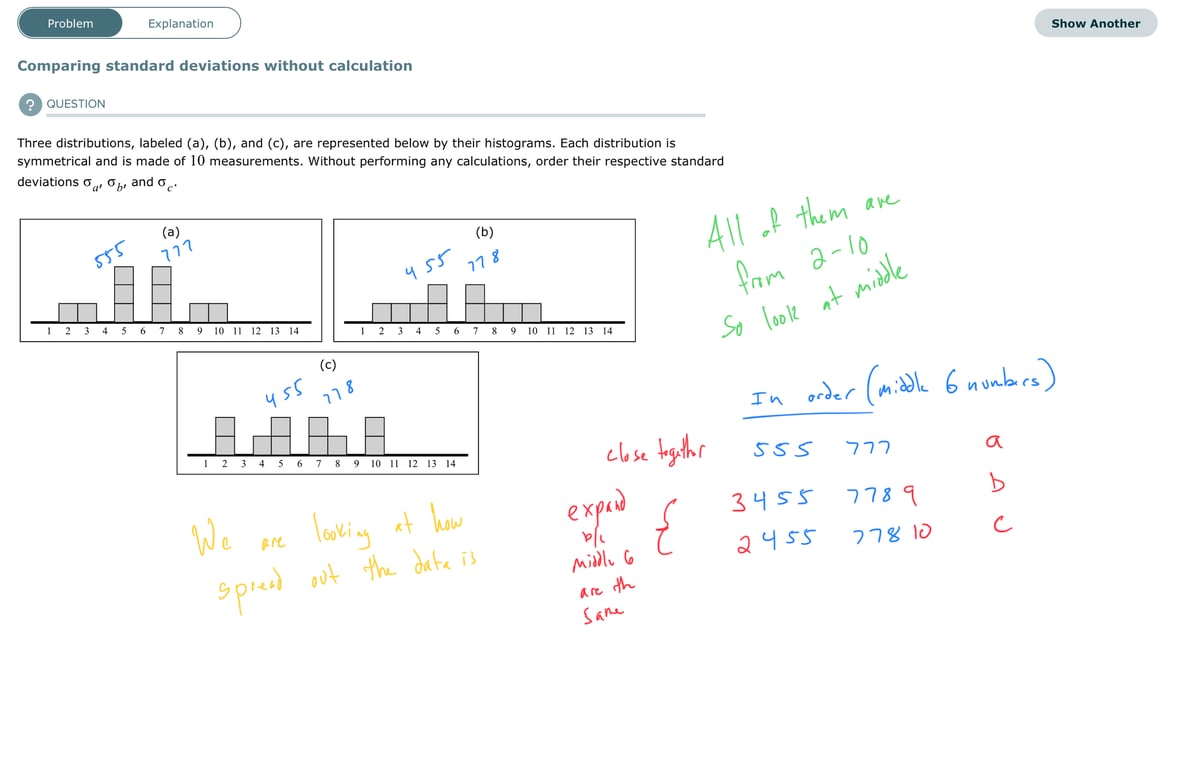 Problem
Explanation
Show Another
Comparing standard deviations without calculation
? QUESTION
Three distributions, labeled (a), (b), and (c), are represented below by their histograms. Each distribution is
symmetrical and is made of 10 measurements. Without performing any calculations, order their respective standard
deviations σa, σb, and σc.
(a)
555 777
1 2 3 4 5 6 7 8 9 10 11 12 13 14
(b)
455 778
1 2 3 4 5 6 7 8 9 10 11 12 13 14
(c)
455 778
1 2 3 4 5 6 7 8 9 10 11 12 13 14
All of them are
from 2-10
So look at middle
In order (middle 6 numbers)
close together 555 777 a
3455 7789 b
2455 77810 c
expand
b/c
middle 6
are the
same
{
We are looking at how
spread out the data is